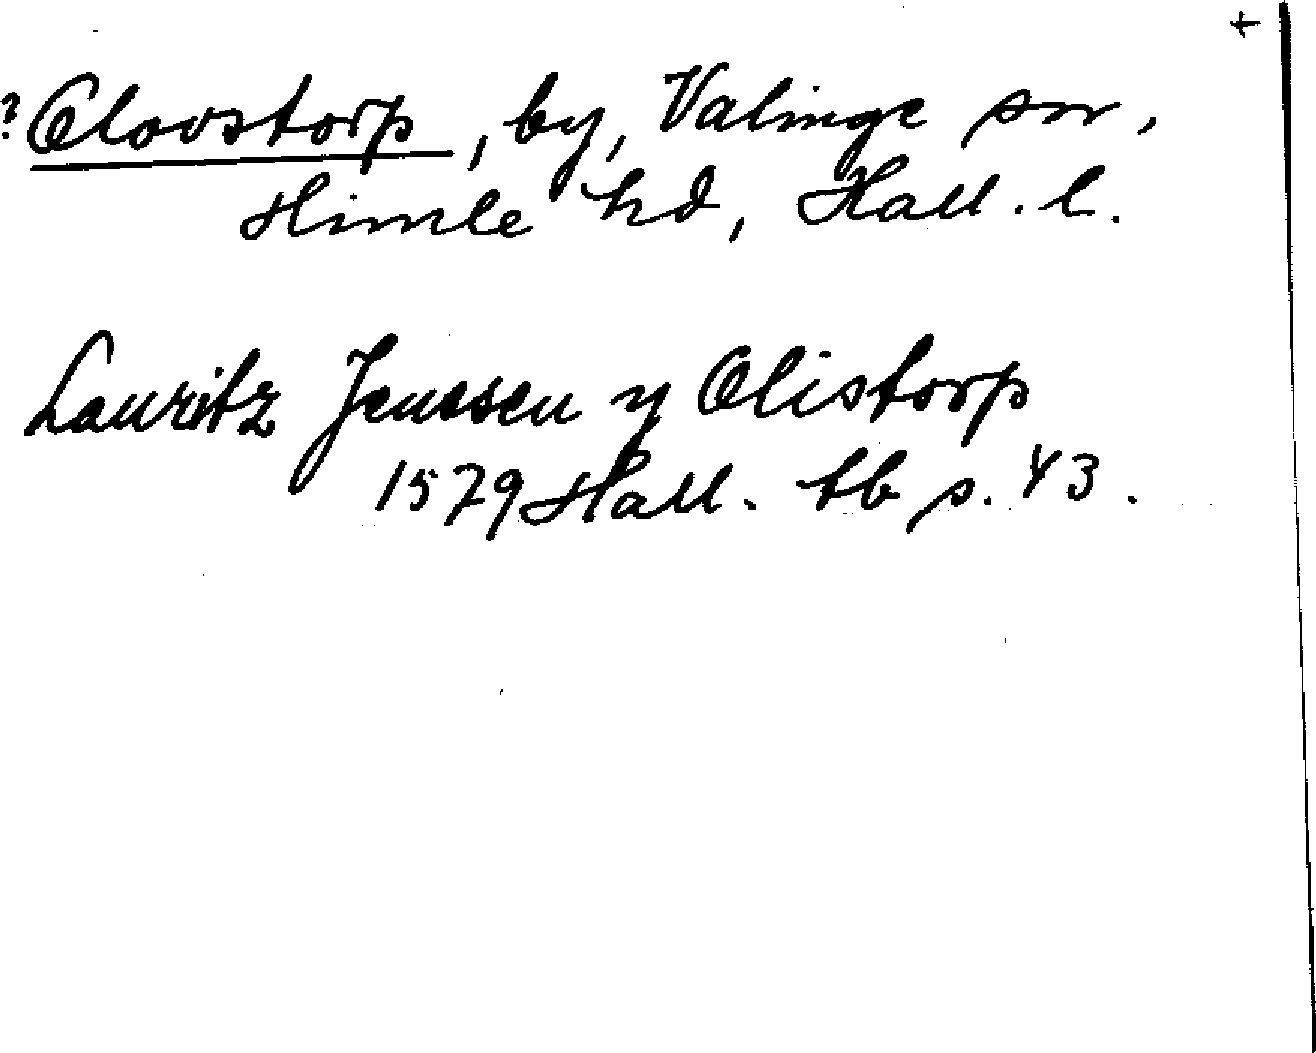 +
? Olovstorp, by, Valinge sn,
Himle hd, Hall. l.
Lauritz Jenssen y Olistorp
1579 Hall. tb s. 43.